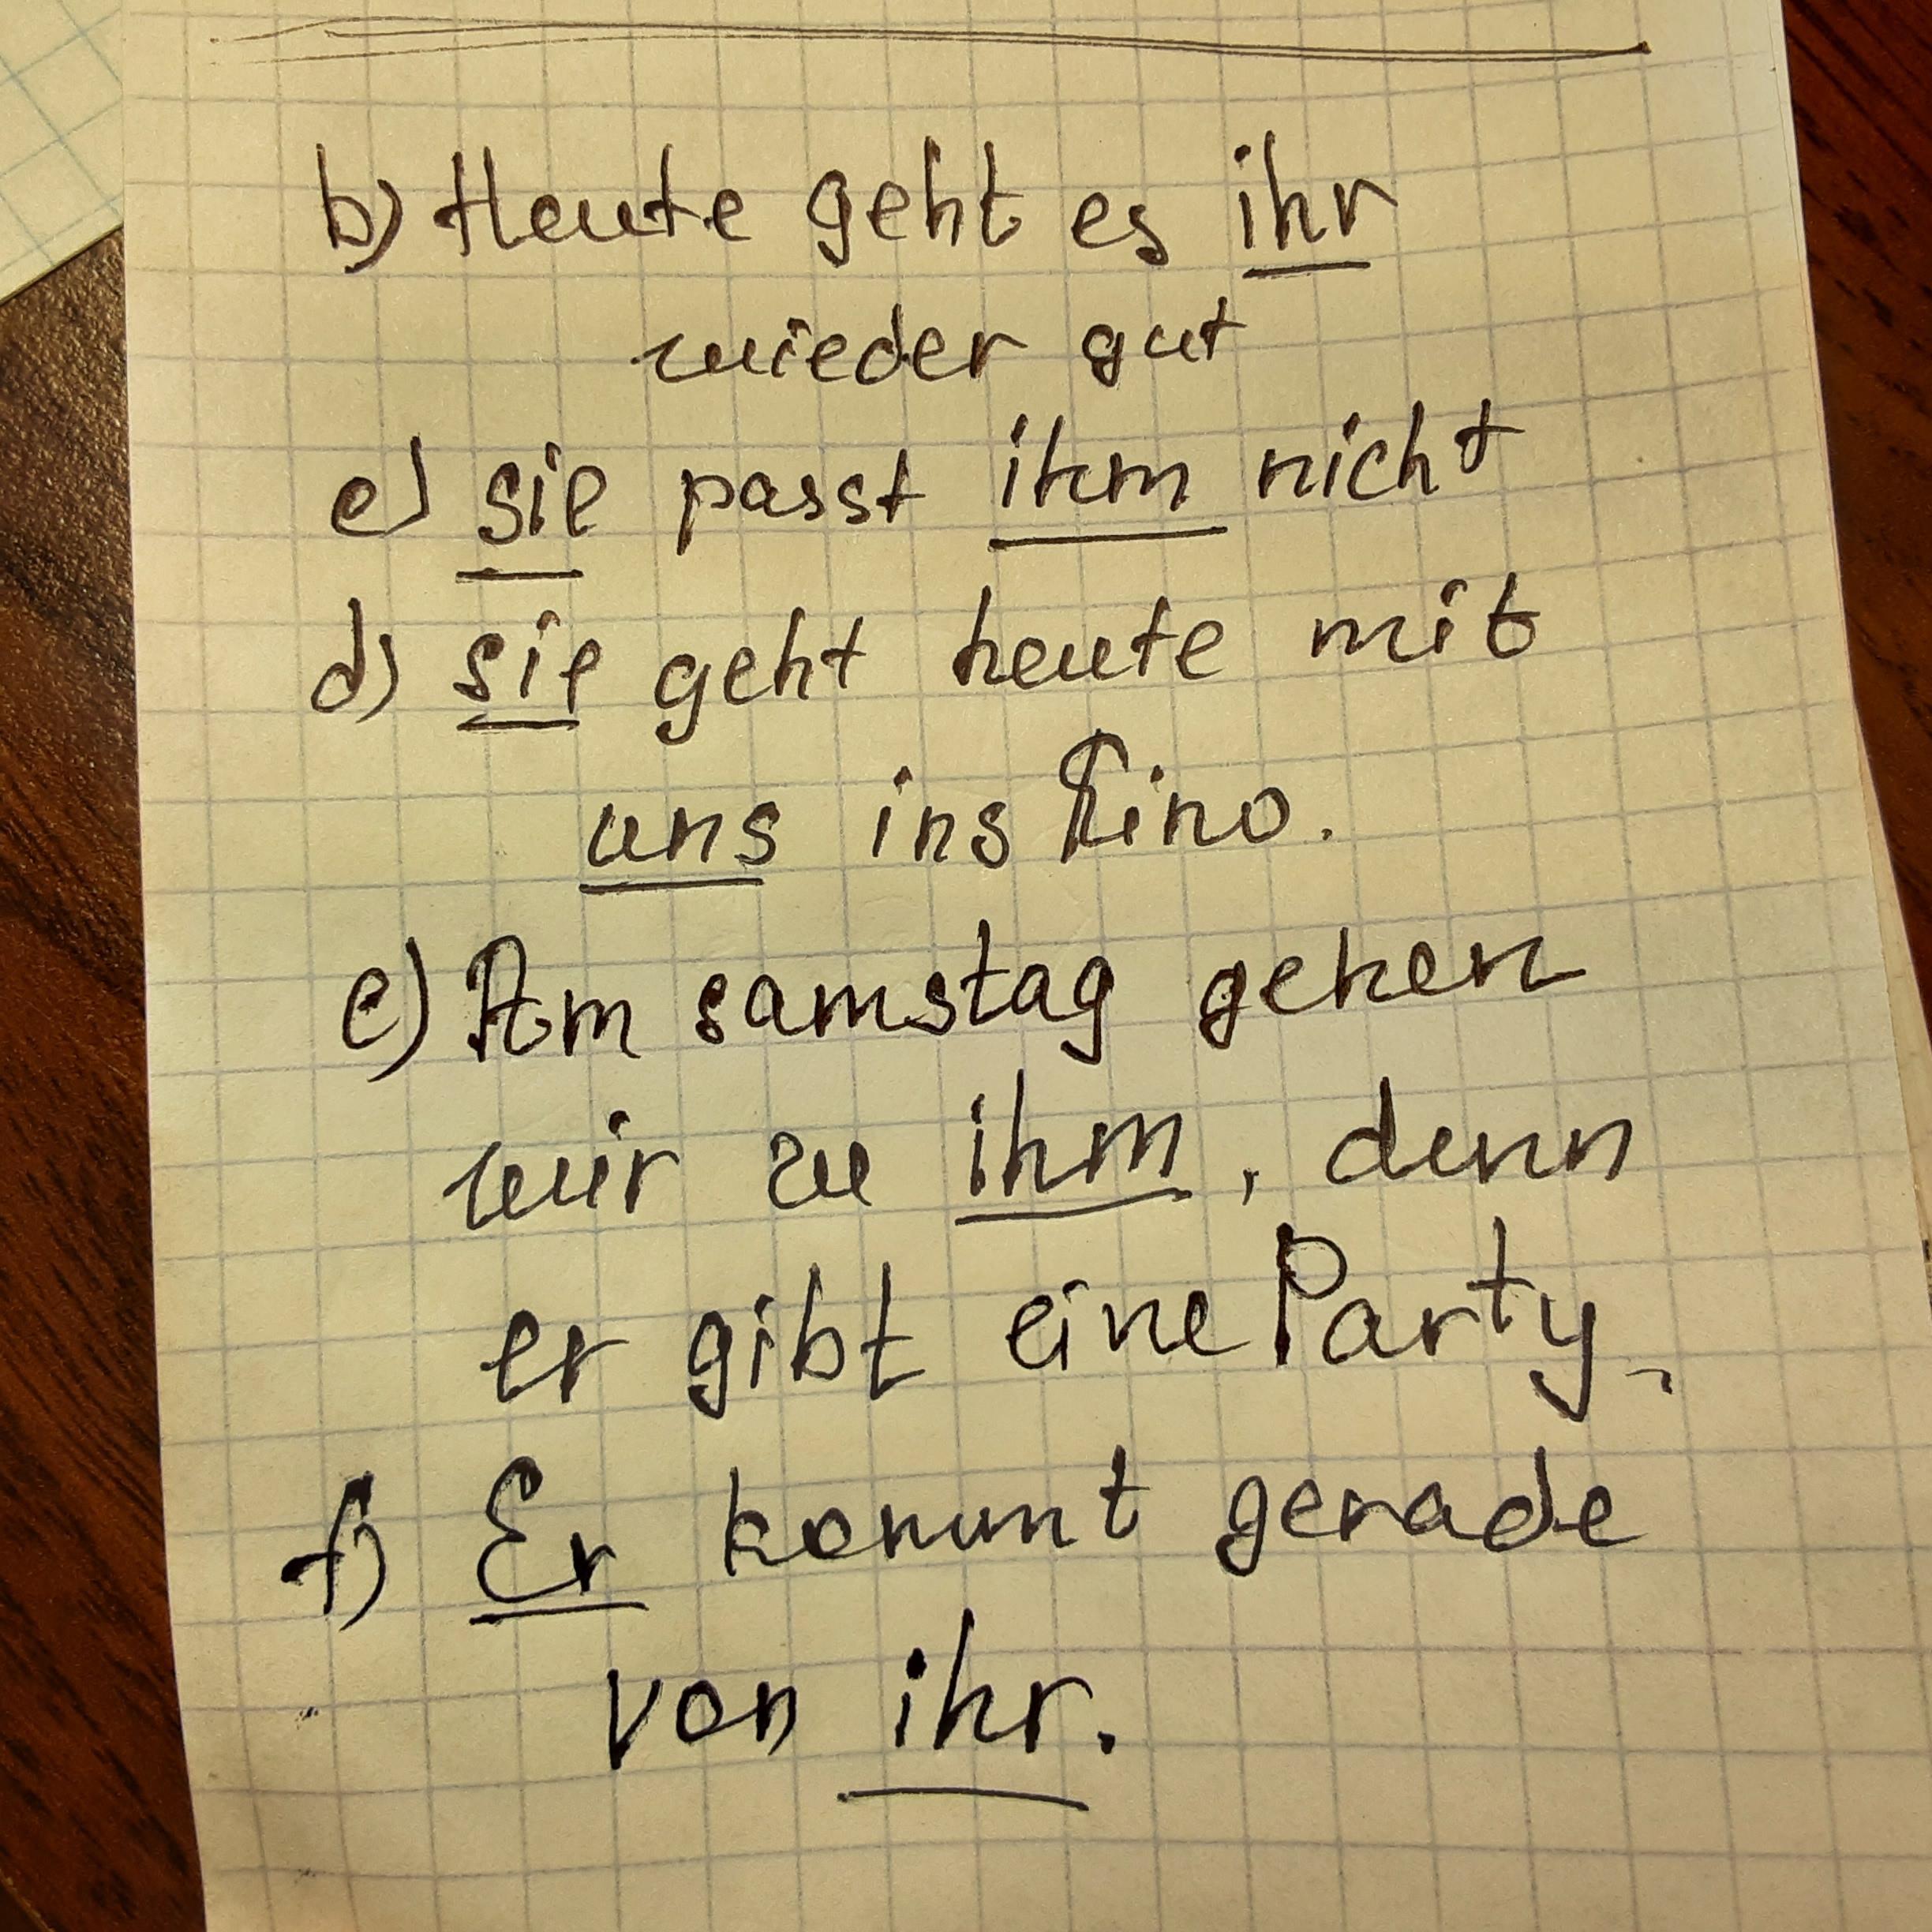 b) Heute geht es ihr
wieder gut
e) sie passt ihm nicht
d) sie geht heute mit
uns ins Kino.
e) Am samstag gehen
wir zu ihm, denn
er gibt eine Party.
f) Er kommt gerade
von ihr.